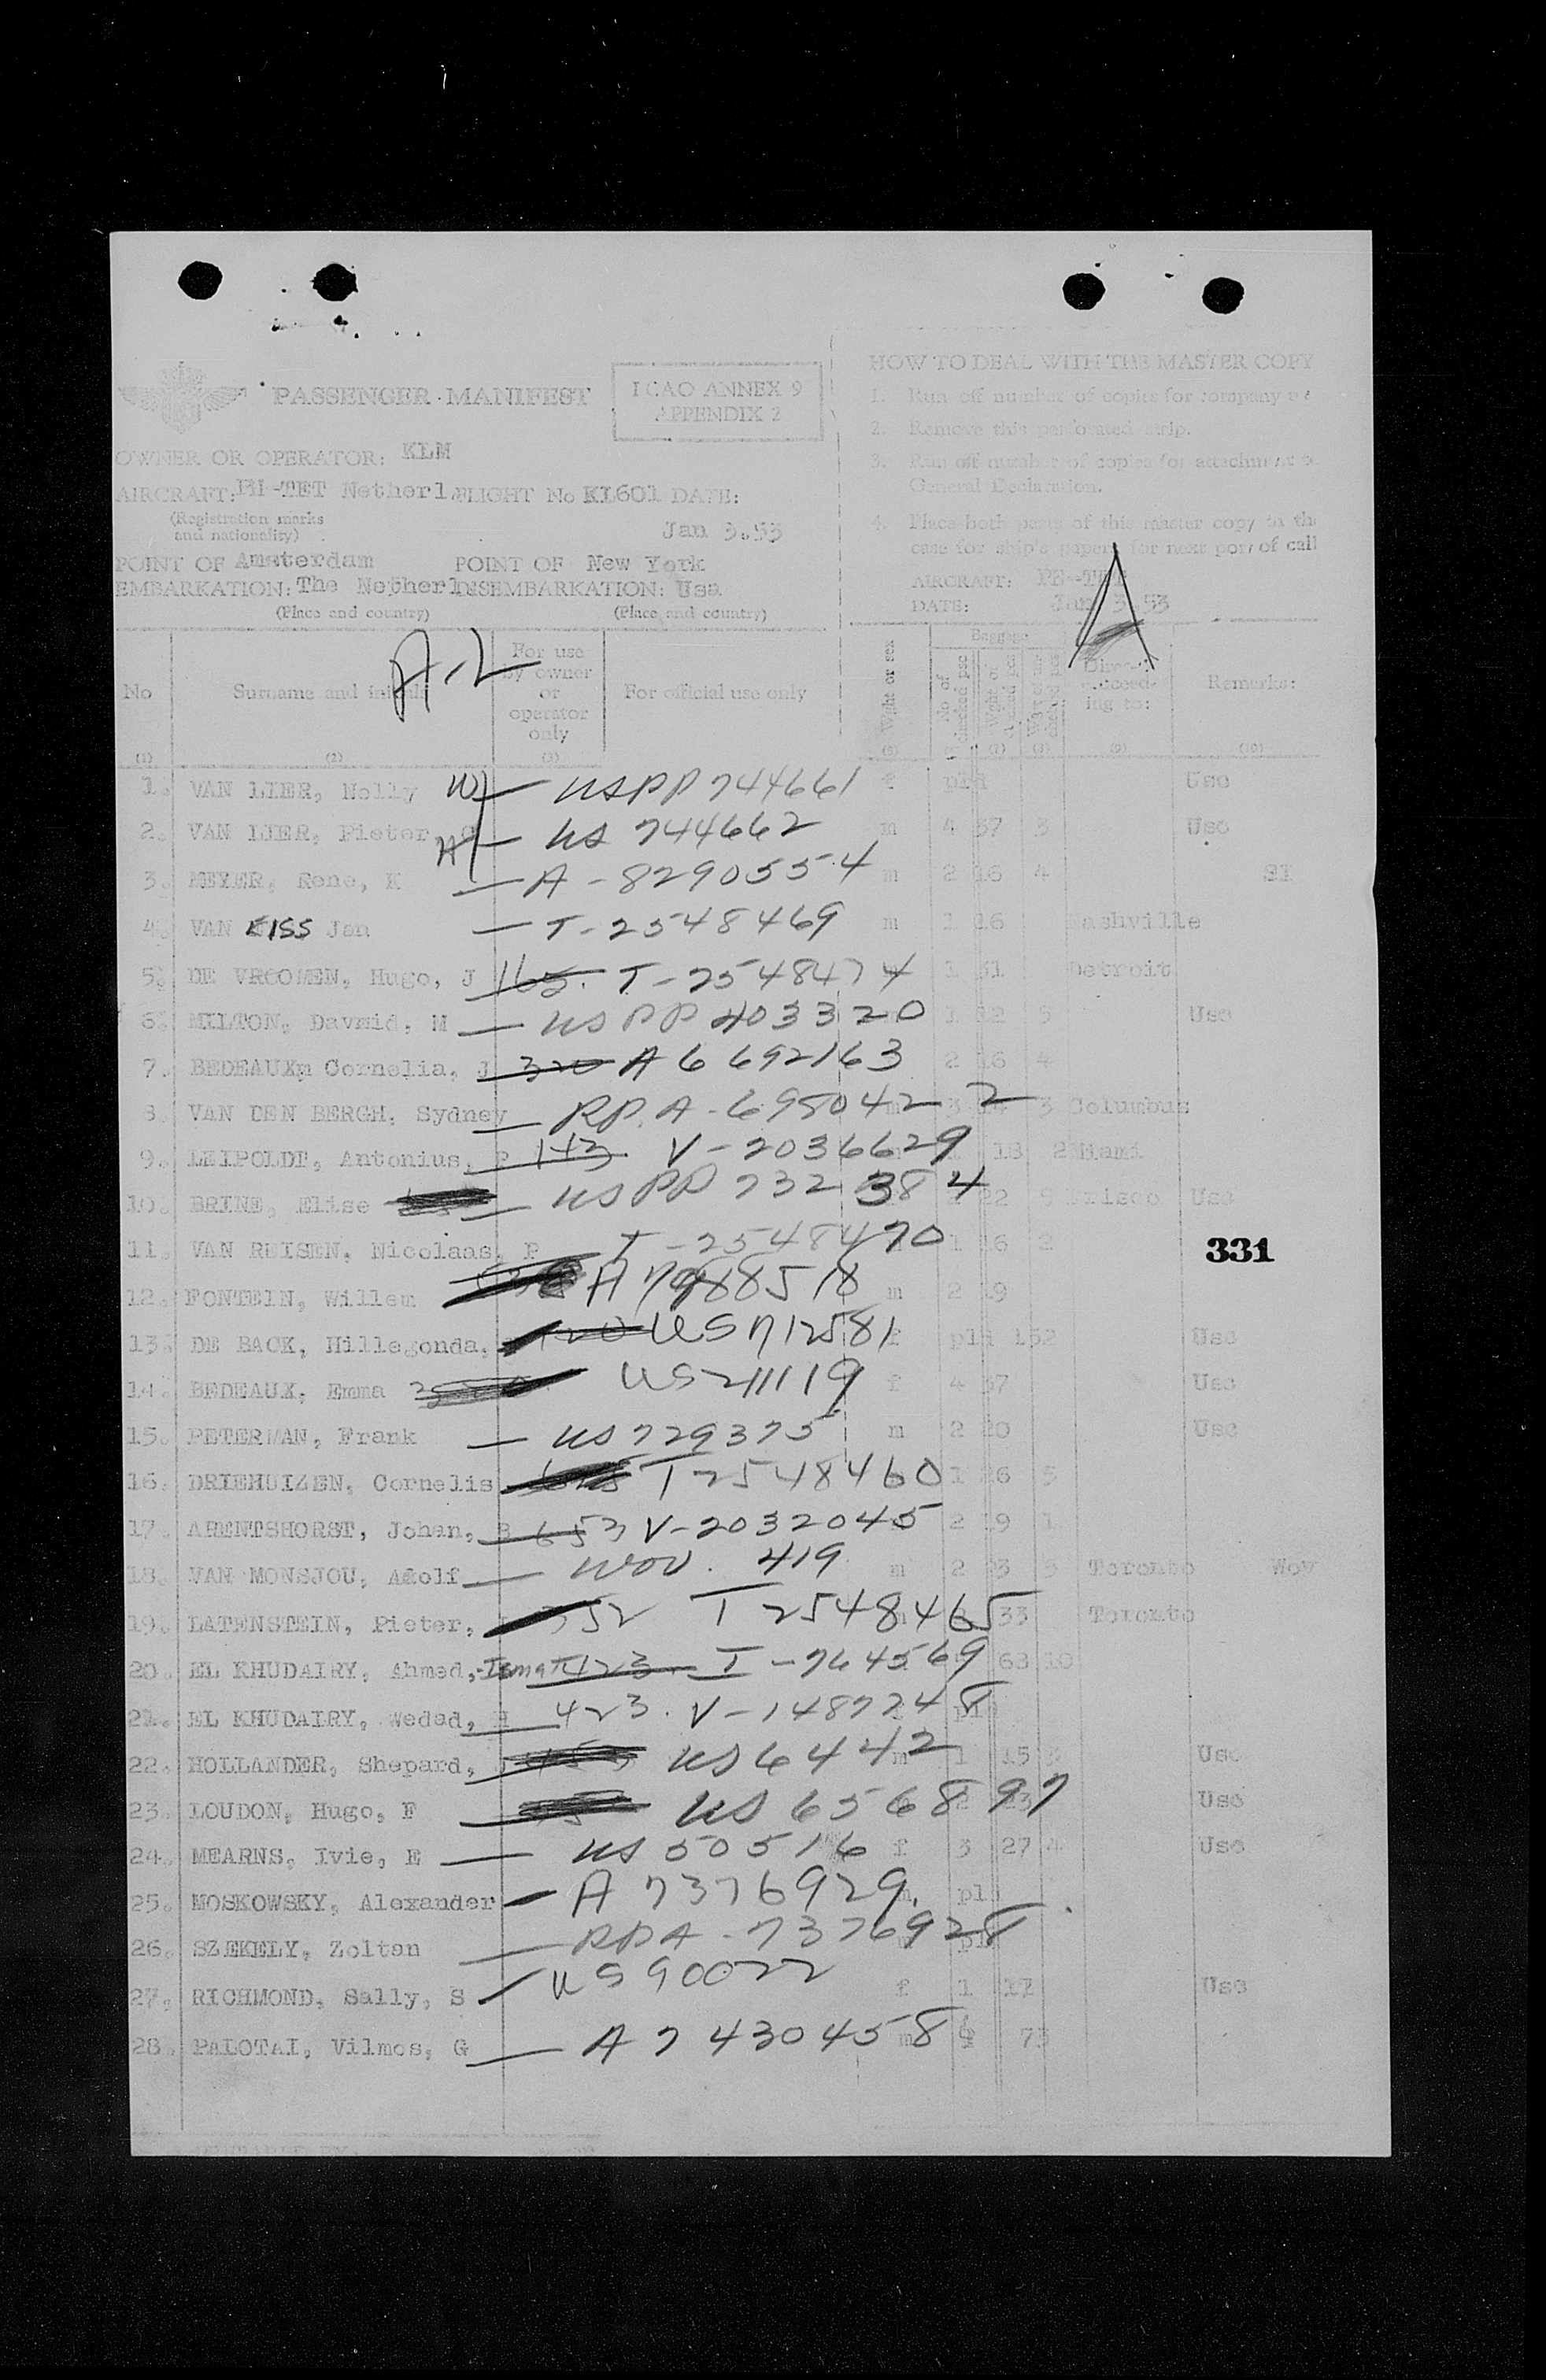 PASSENGER MANIFEST
ICAO ANNEX 9
APPENDIX 2
OWNER OR OPERATOR: KLM
AIRCRAFT: PH-TET Netherl. FLIGHT No KL601 DATE:
(Registration marks
and nationality)
Jan 3.53
POINT OF Amsterdam POINT OF New York
EMBARKATION: The Netherl DISEMBARKATION: Usa
(Place and country) (Place and country)
HOW TO DEAL WITH THE MASTER COPY
1. Run off number of copies for company
2. Remove this perforated strip.
3. Run off number of copies for attachment
General Declaration.
4. Place both parts of this master copy in the
case for ship's papers for next port of call
AIRCRAFT: PH-TET
DATE: Jan 3 53
A-L
No
Surname and initials
For use
by owner
or
operator
only
For official use only
Wight or sex
Baggage
Remarks:
(1) (2) (3) (7) (8) (9) (10)
1. VAN LIER, Molly W — USPP 744661 f pld Usc
2. VAN LIER, Pieter, — US 744662 m 4 37 3 Usc
3. MEYER, Rene, K — A-8290555 4 m 2 16 4
4. VAN KISS Jan — T-2548469 m 1 16 Nashville
5. DE VROOMEN, Hugo, J 165. T-2548474 1 31 Detroit
6. MILTON, Davmid, M — US PP 403320 1 22 5 Usc
7. BEDEAUXm Cornelia, J 320 A 6 692163 2 16 4
8. VAN DEN BERGH, Sydney — RP. A-6950422 3 3 Columbus
9. LEIPOLDT, Antonius, P 143 V-2036629 18 2 Miami
10. BRINE, Elise — US PP 732384 22 Frisco Usc
11. VAN REISEN, Nicolaas, P T-2548470 1 16 2
331
12. FONTEIN, Willem A 7988518 m 2 19
13. DE BACK, Hillegonda, 120 US 712581 f pld 152 Usc
14. BEDEAUX, Emma US 211119 f 4 37 Usc
15. PETERMAN, Frank — US 729375 m 2 20 Usc
16. DRIEHUIZEN, Cornelis T 2548460 1 26 5
17. ARENTSHORST, Johan, B 653 V-2032045 2 19 1
18. VAN MONSJOU, Adolf — WOV. 419 m 2 23 5 Toronto Wov
19. LATENSTEIN, Pieter, 352 T 2548465 33 Toronto
20. EL KHUDAIRY, Ahmed, -Ismat 423 I-764569 63 10
21. EL KHUDAIRY, Wedad, H 423. V-1487248 pld
22. HOLLANDER, Shepard, US 6442 m 1 15 Usc
23. LOUDON, Hugo, F US 656897 Usc
24. MEARNS, Ivie, E — US 50516 f 3 27 4 Usc
25. MOSKOWSKY, Alexander — A 7376929. m pld
26. SZEKELY, Zoltan — RPA-7376928 pld
27. RICHMOND, Sally, S US 90022 f 1 17 Usc
28. PALOTAI, Vilmos, G — A 7430458 m 73